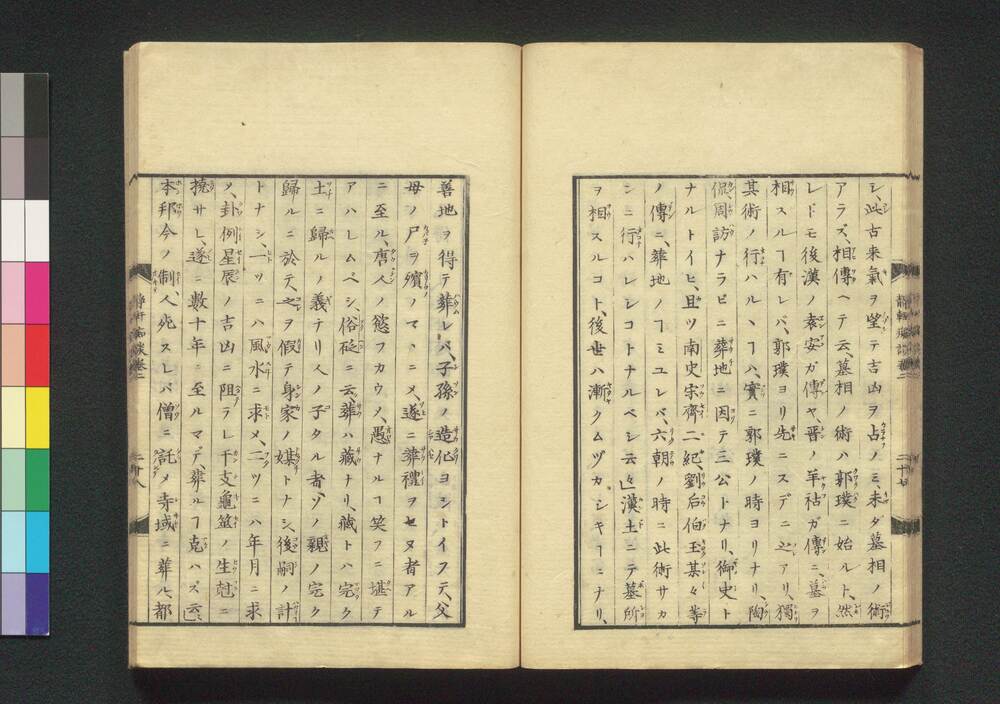 シ、此古来氣ヲ望テ吉凶ヲ占ノミ、未ダ墓相ノ術
アラズ、相傳ヘテ云、墓相ノ術ハ郭璞ニ始ルト、然
レドモ後漢ノ袁安ガ傳ヤ、晋ノ羊祜ガ傳ニ、墓ヲ
相スルヿ有レバ、郭璞ヨリ先ニスデニ之アリ、獨
其術ノ行ハルヽヿハ、實ニ郭璞ノ時ヨリナリ、陶
侃、周訪ナラビニ葬地ニ因テ三公トナリ、御史ト
ナルトイヒ、且ツ南史宋齊二紀、劉后伯玉某々等
ノ傳ニ、葬地ノヿミユレバ、六朝ノ時ニ此術サカ
ンニ行ハレシコトナルベシ云々、漢土ニテ墓所
ヲ相スルコト、後世ハ漸クムヅカシキヿニナリ、
善地ヲ得テ葬レバ、子孫ノ造化ヨシトイフテ、父
母ノ尸ヲ殯ノマヽニメ、遂ニ葬禮ヲセヌ者アル
ニ至ル、唐人ノ慾フカウメ、愚ナルヿ笑フニ堪テ
アハレムベシ、俗砭ニ云、葬ハ藏ナリ、藏トハ完ク
土ニ歸ルノ義テリ人ノ子タル者、ソノ親ノ完ク
歸ルニ於テ、之ヲ假テ身家ノ媒トナシ、後嗣ノ計
トナシ、一ツニハ風水ニ求メ、二ツニハ年月ニ求
メ、卦例星辰ノ吉凶ニ阻テレ干支龜筮ノ生尅ニ
撓サレ、遂ニ數十年ニ至ルマデ、葬ルヿ克ハズ云々
本邦今ノ制、人死スレバ僧ニ託メ寺域ニ葬ル、都
靜軒痴談卷二
二十七
靜軒痴談卷二
二十八